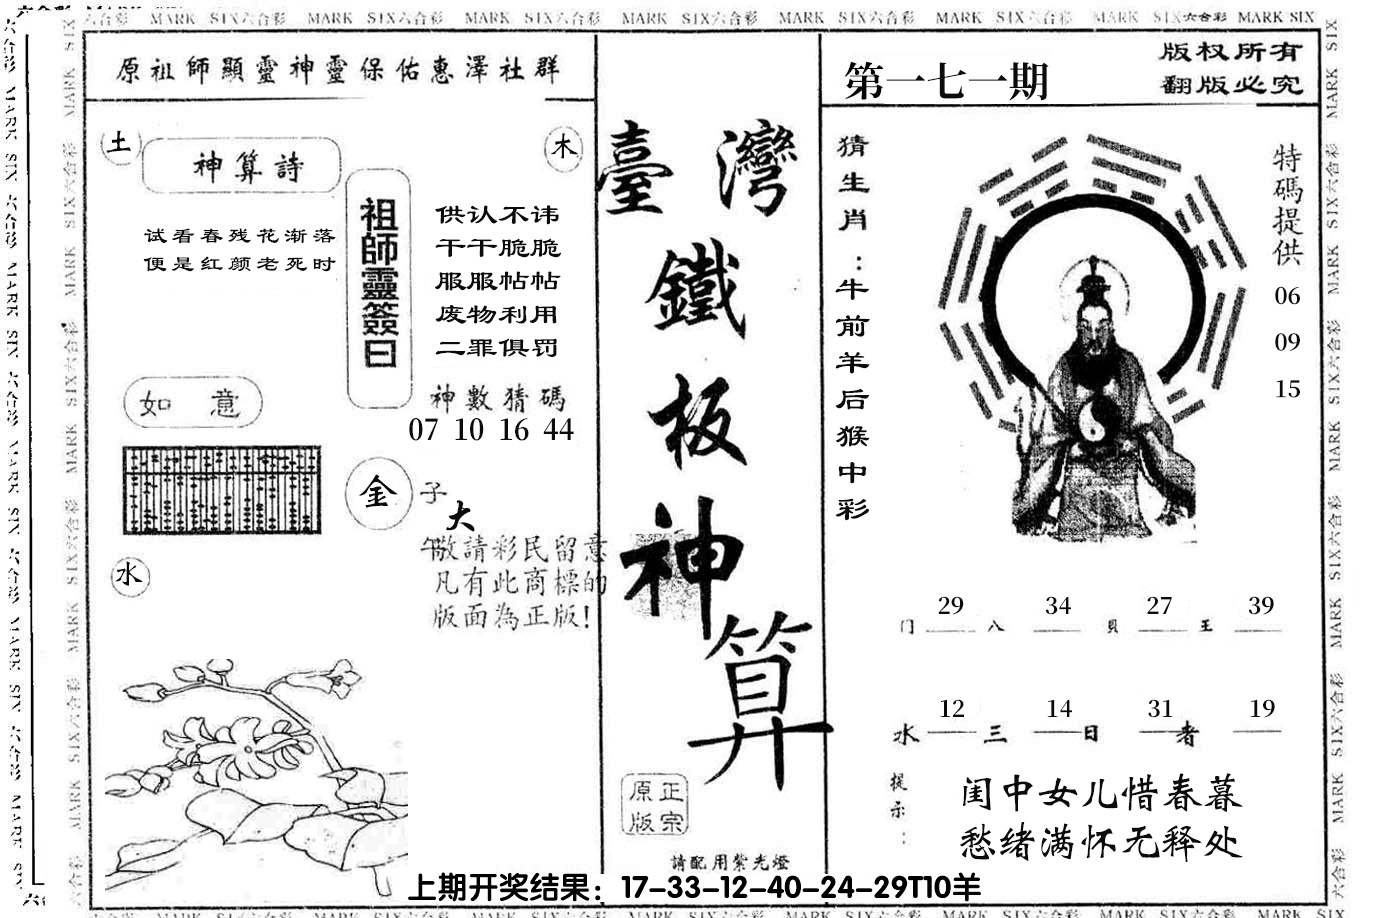 六合彩 MARK SIX六合彩 MARK SIX六合彩 MARK SIX六合彩 MARK SIX六合彩 MARK SIX六合彩 MARK SIX六合彩 MARK SIX六合彩 MARK SIX
原祖師顯靈神靈保佑惠澤社群
土
神算詩
木
试看春残花渐落
便是红颜老死时
祖師靈簽曰
供认不讳
干干脆脆
服服帖帖
废物利用
二罪俱罚
如意
神數猜碼
07 10 16 44
金
子
大
午
敬請彩民留意
凡有此商標的
版面為正版!
水
臺灣
鐵
板
神
算
正宗
原版
請配用紫光燈
第一七一期
版权所有
翻版必究
猜生肖:牛前羊后猴中彩
特碼提供
06
09
15
29 34 27 39
门 八 貝 王
12 14 31 19
水 三 日 者
提示:
闺中女儿惜春暮
愁绪满怀无释处
上期开奖结果：17-33-12-40-24-29T10羊